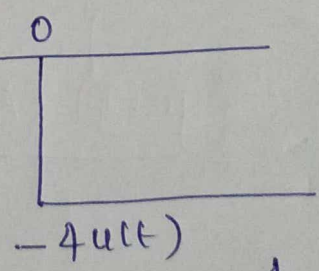 0
- 4u(t)